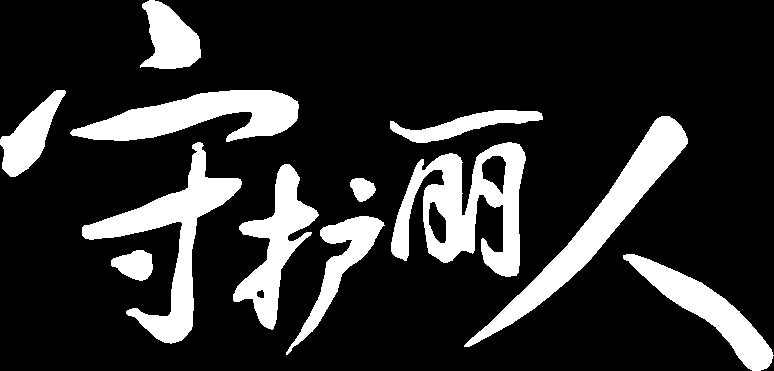 守护丽人